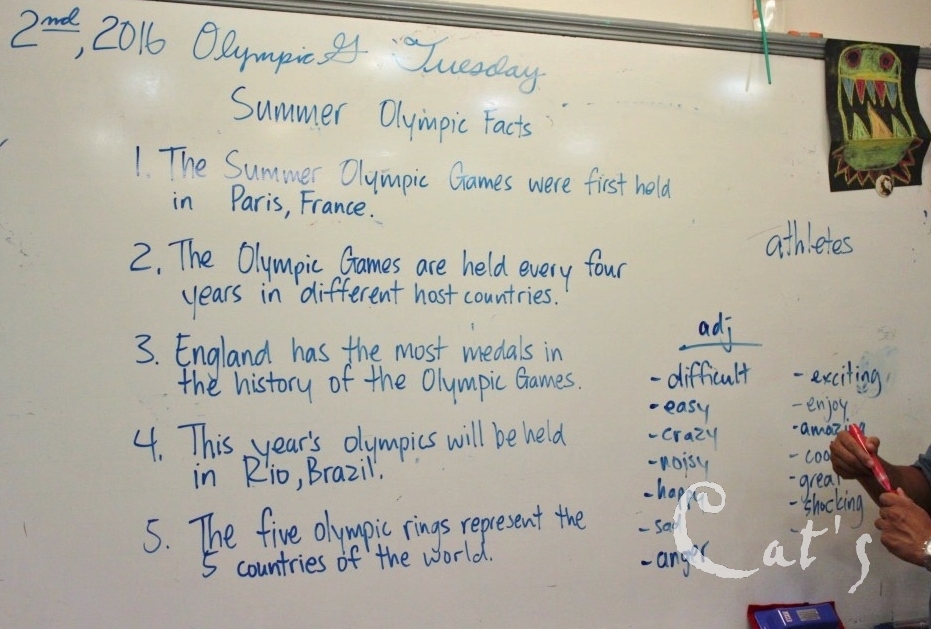 2nd, 2016 Olympic G Tuesday
Summer Olympic Facts
1. The Summer Olympic Games were first held
in Paris, France.
2. The Olympic Games are held every four
years in different host countries.
3. England has the most medals in
the history of the Olympic Games.
4. This year's olympics will be held
in Rio, Brazil.
5. The five olympic rings represent the
5 countries of the world.
athletes
adj
- difficult
- easy
- crazy
- noisy
- happy
- sad
- anger
- exciting
- enjoy
- amazing
- great
- shocking
-
Cat's